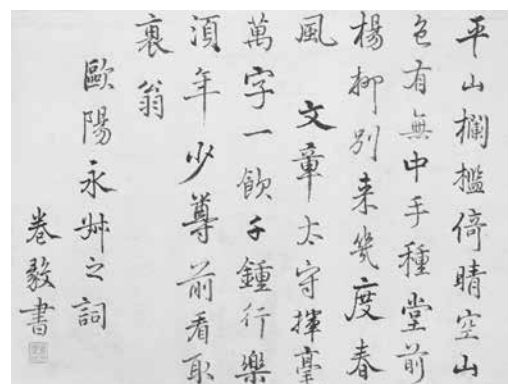 平山欄檻倚晴空山
色有無中手種堂前
楊柳別来幾度春
風 文章太守揮毫
萬字一飲千鍾行樂
湏年少尊前看取
衰翁
歐陽永叔之詞
養毅書